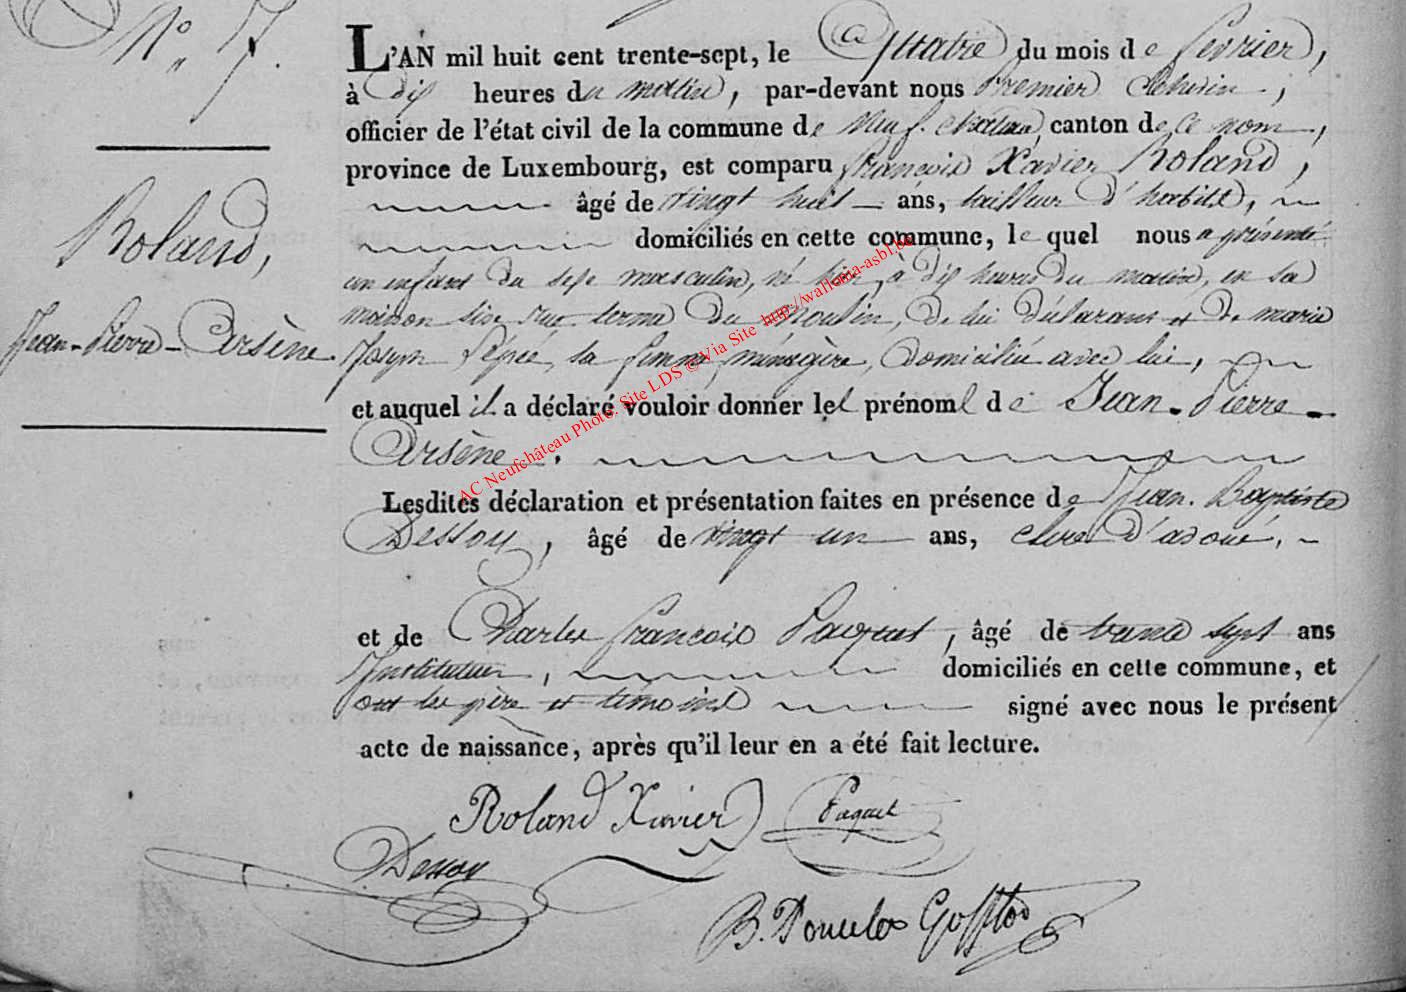 N° 7.
Roland,
Jean-Pierre-Arsène.
L'AN mil huit cent trente-sept, le quatre du mois de février,
à dix heures du matin, par-devant nous Premier Echevin,
officier de l'état civil de la commune de Neufchateau, canton de ce nom,
province de Luxembourg, est comparu françois Xavier Roland,
âgé de vingt huit ans, tailleur d'habits,
domiciliés en cette commune, lequel nous a présenté
un enfant du sexe masculin, né hier, à dix heures du matin, en sa
maison sise rue terme du Moulin, de lui déclarant et de marie
Joseph Lépée, sa femme, ménagère, domiciliée avec lui,
et auquel il a déclaré vouloir donner les prénoms de Jean-Pierre-
Arsène.
Lesdites déclaration et présentation faites en présence de Jean-Baptiste
Dessoy, âgé de vingt un ans, clerc d'avoué,
et de Charles françois Paquet, âgé de trente sept ans
Instituteur, domiciliés en cette commune, et
ont les père et témoins signé avec nous le présent
acte de naissance, après qu'il leur en a été fait lecture.
Roland Xavier Paquet
Dessoy
AC Neufchâteau Photo. Site LDS © Via Site http://wallonia-asbl.be